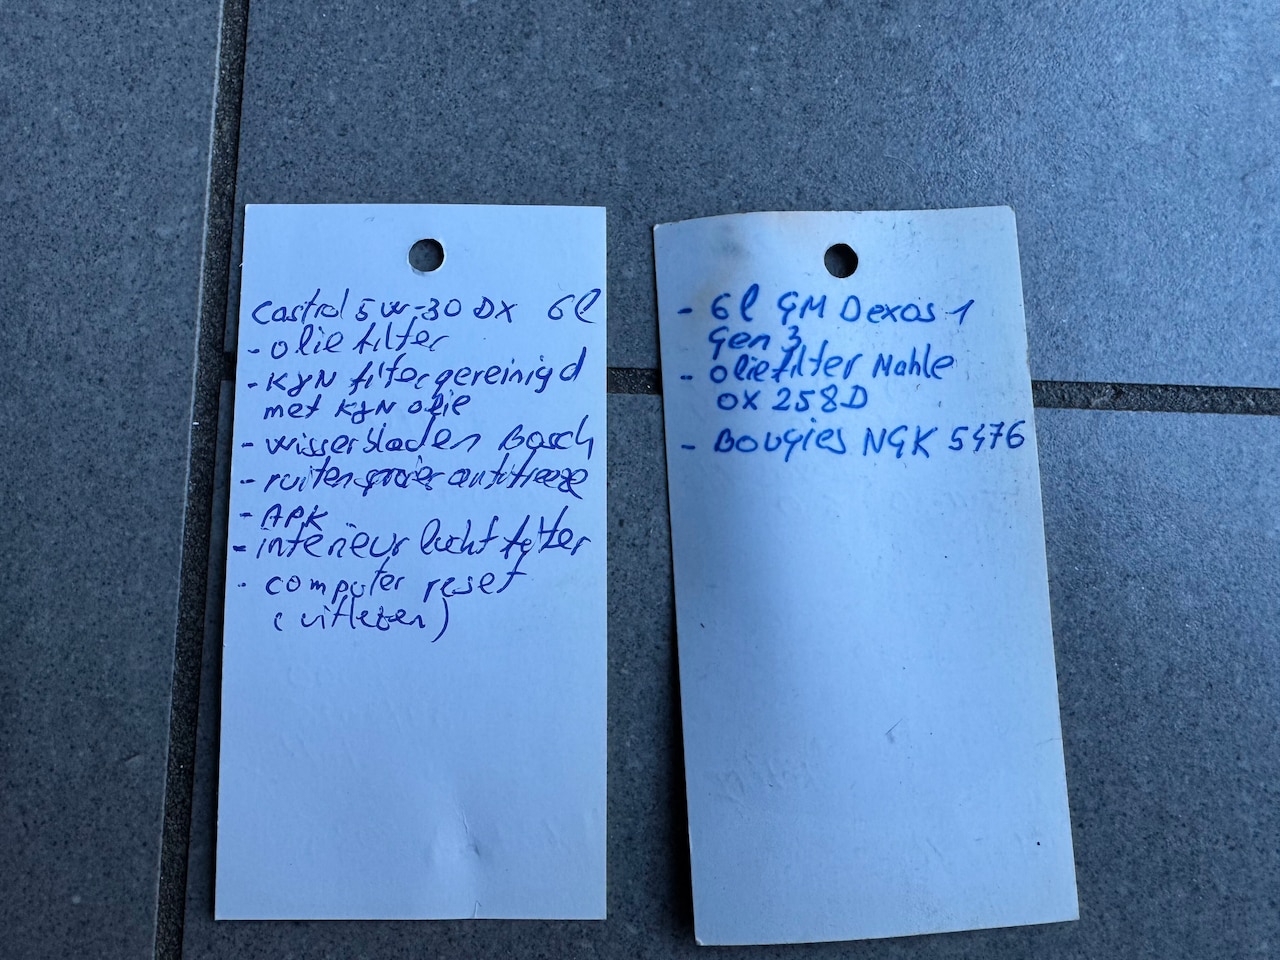 Castrol 5W-30 DX 6l
- olie filter
- K&N filter gereinigd
met K&N olie
- wisserbladen Bosch
- ruitensproeier antifreeze
- APK
- interieur lucht filter
- computer reset
(uitlezen)
- 6l GM Dexos 1
Gen 3
- oliefilter Mahle
OX 258D
- Bougies NGK 5476